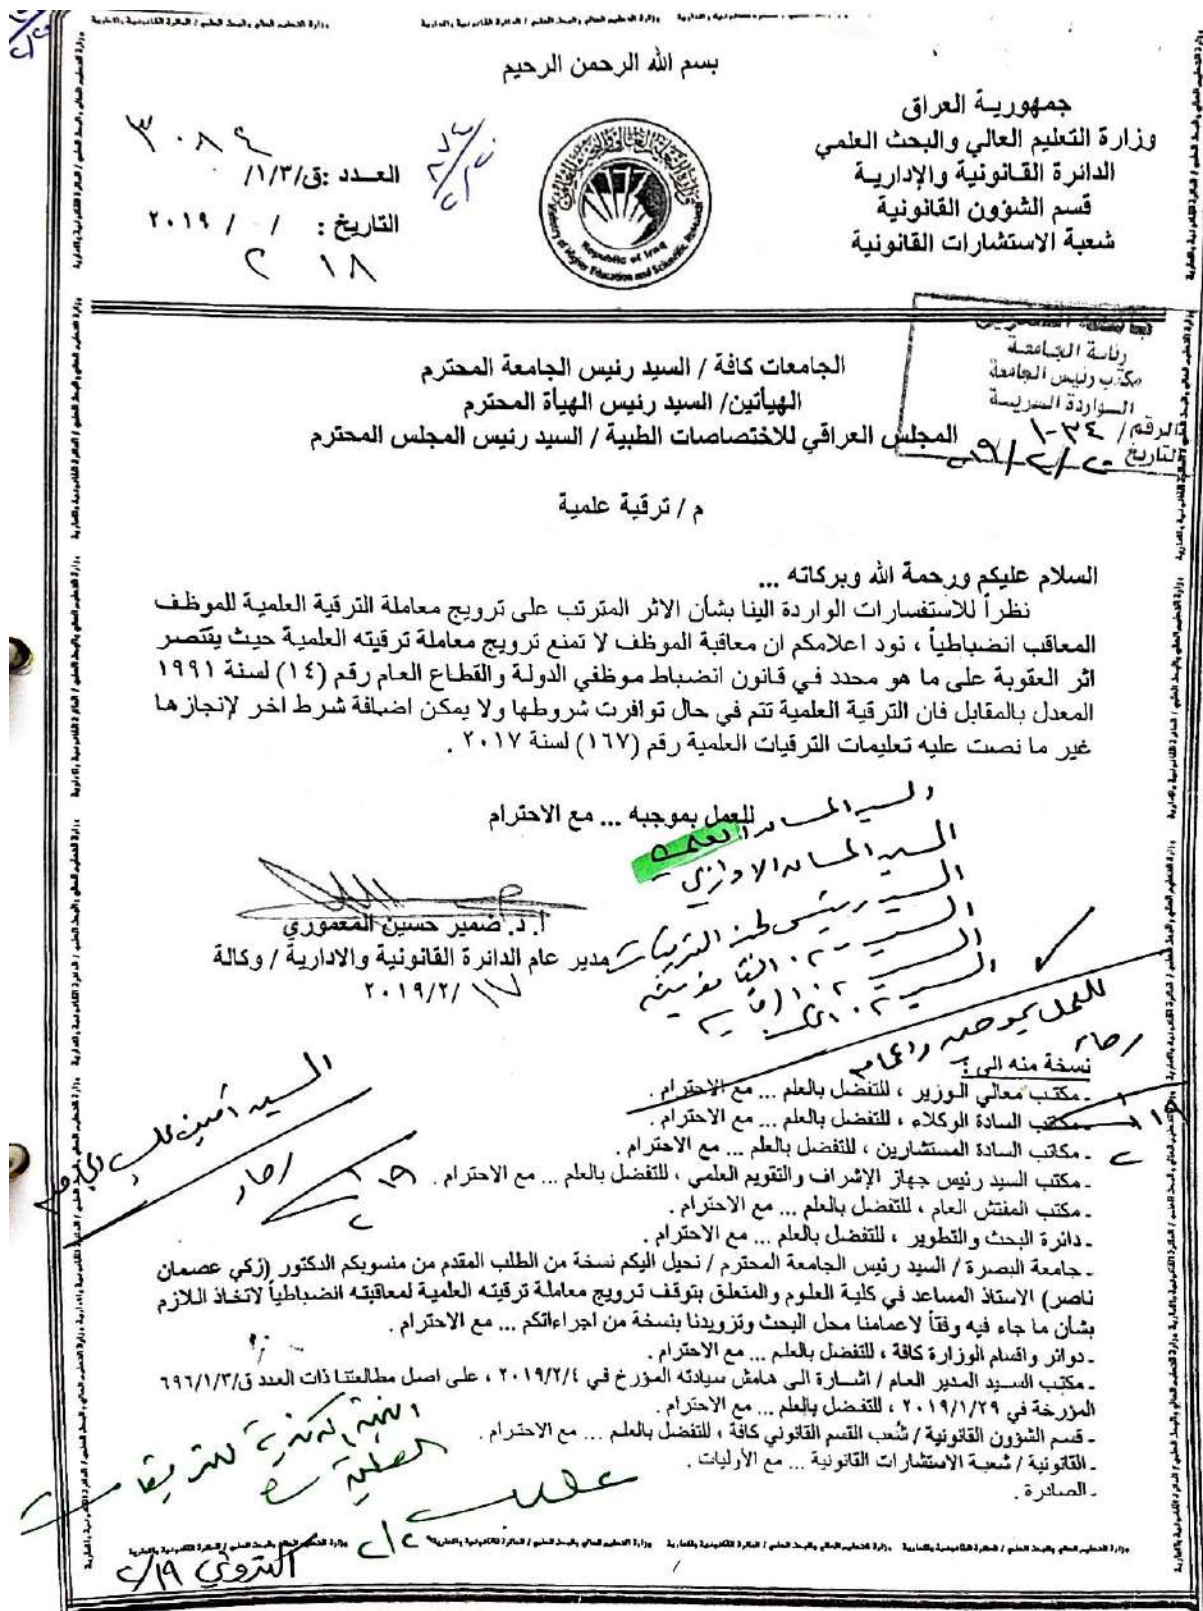 بسم الله الرحمن الرحيم
جمهورية العراق
وزارة التعليم العالي والبحث العلمي
الدائرة القانونية والإدارية
قسم الشؤون القانونية
شعبة الاستشارات القانونية
العدد :ق/١/٣/ ٣٠٨٤
التاريخ : ١٨ / ٢ / ٢٠١٩
Republic of Iraq
Ministry of Higher Education and Scientific Research
رئاسة الجامعة
مكتب رئيس الجامعة
الواردة السرية
الرقم / ١٠٣٤
التاريخ ٢٠/٢/٢٠١٩
الجامعات كافة / السيد رئيس الجامعة المحترم
الهيأتين/ السيد رئيس الهيأة المحترم
المجلس العراقي للاختصاصات الطبية / السيد رئيس المجلس المحترم
م / ترقية علمية
السلام عليكم ورحمة الله وبركاته ...
نظراً للاستفسارات الواردة الينا بشأن الاثر المترتب على ترويج معاملة الترقية العلمية للموظف
المعاقب انضباطياً ، نود اعلامكم ان معاقبة الموظف لا تمنع ترويج معاملة ترقيته العلمية حيث يقتصر
اثر العقوبة على ما هو محدد في قانون انضباط موظفي الدولة والقطاع العام رقم (١٤) لسنة ١٩٩١
المعدل بالمقابل فان الترقية العلمية تتم في حال توافرت شروطها ولا يمكن اضافة شرط اخر لإنجازها
غير ما نصت عليه تعليمات الترقيات العلمية رقم (١٦٧) لسنة ٢٠١٧ .
للعمل بموجبه ... مع الاحترام
السيد المساعد العلمي
السيد المساعد الاداري
السيد رئيس لجنة الترقيات
أ.د. ضمير حسين المعموري
مدير عام الدائرة القانونية والادارية / وكالة
١٧/٢/٢٠١٩
للعمل بموجبه
نسخة منه الى :
- مكتب معالي الوزير ، للتفضل بالعلم ... مع الاحترام .
- مكتب السادة الوكلاء ، للتفضل بالعلم ... مع الاحترام .
- مكاتب السادة المستشارين ، للتفضل بالعلم ... مع الاحترام .
- مكتب السيد رئيس جهاز الإشراف والتقويم العلمي ، للتفضل بالعلم ... مع الاحترام .
- مكتب المفتش العام ، للتفضل بالعلم ... مع الاحترام .
- دائرة البحث والتطوير ، للتفضل بالعلم ... مع الاحترام .
- جامعة البصرة / السيد رئيس الجامعة المحترم / نحيل اليكم نسخة من الطلب المقدم من منسوبكم الدكتور (زكي عصمان
ناصر) الاستاذ المساعد في كلية العلوم والمتعلق بتوقف ترويج معاملة ترقيته العلمية لمعاقبته انضباطياً لاتخاذ اللازم
بشأن ما جاء فيه وفقاً لاعمامنا محل البحث وتزويدنا بنسخة من اجراءاتكم ... مع الاحترام .
- دوائر واقسام الوزارة كافة ، للتفضل بالعلم ... مع الاحترام .
- مكتب السيد المدير العام / اشارة الى هامش سيادته المؤرخ في ٢٠١٩/٢/٤ ، على اصل مطالعتنا ذات العدد ق/٦٩٦/١/٣
المؤرخة في ٢٠١٩/١/٢٩ ، للتفضل بالعلم ... مع الاحترام .
- قسم الشؤون القانونية / شعب القسم القانوني كافة ، للتفضل بالعلم ... مع الاحترام .
- القانونية / شعبة الاستشارات القانونية ... مع الأوليات .
- الصادرة .